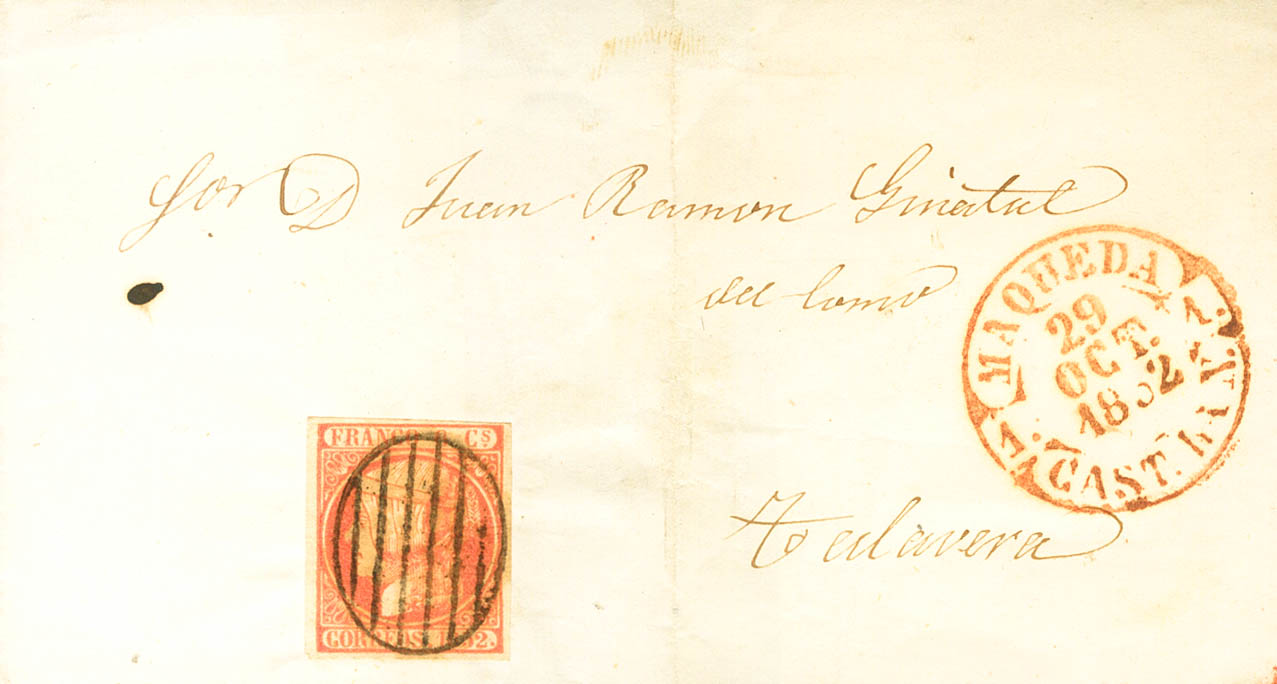 Sor D Juan Ramon Ginatal
del Comō
MAQUEDA
29
OCT.
1852
CAST. LA N.
Talavera
FRANCO 6 Cs
CORREOS 1852.